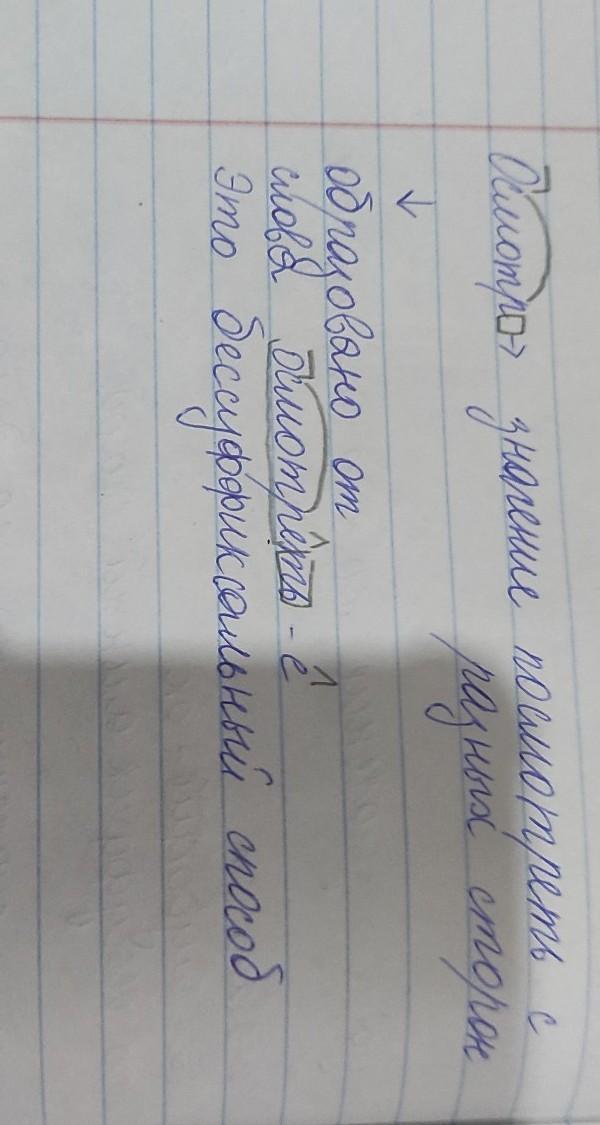 Осмотр → значение посмотреть с
разных сторон
↓
образовано от
слова осмотреть - е
Это бессуффиксальный способ